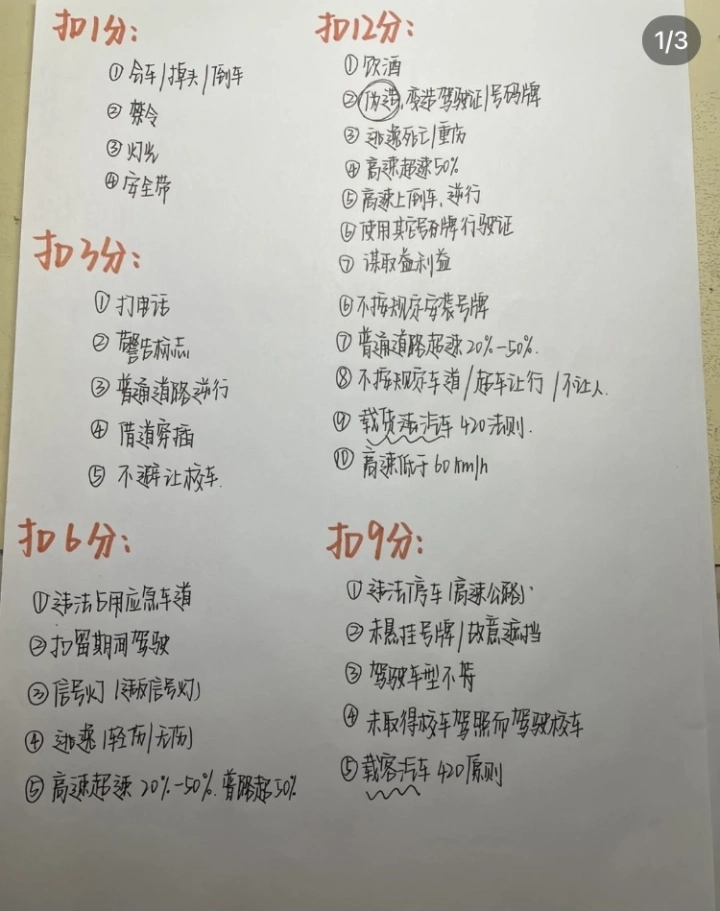 1/3
扣1分:
①会车/掉头/倒车
②禁令
③灯光
④安全带
扣3分:
①打电话
②警告标志
③普通道路逆行
④借道穿插
⑤不避让校车.
扣6分:
①违法占用应急车道
②扣留期间驾驶
③信号灯(违反信号灯)
④逃逸(轻伤/无伤)
⑤高速超速20%-50%.普路超50%
扣12分:
①饮酒
②伪造,变造驾驶证/号码牌
③逃逸死亡/重伤
④高速超速50%
⑤高速上倒车,逆行
⑥使用其它号码牌行驶证
⑦谋取益利益
⑥不按规定安装号牌
⑦普通道路超速20%-50%.
⑧不按规定车道/超车让行/不让人.
⑨载货汽车420法则.
⑩高速低于60km/h
扣9分:
①违法停车(高速公路)
②未悬挂号牌/故意遮挡
③驾驶车型不符
④未取得校车驾照而驾驶校车
⑤载客汽车420原则